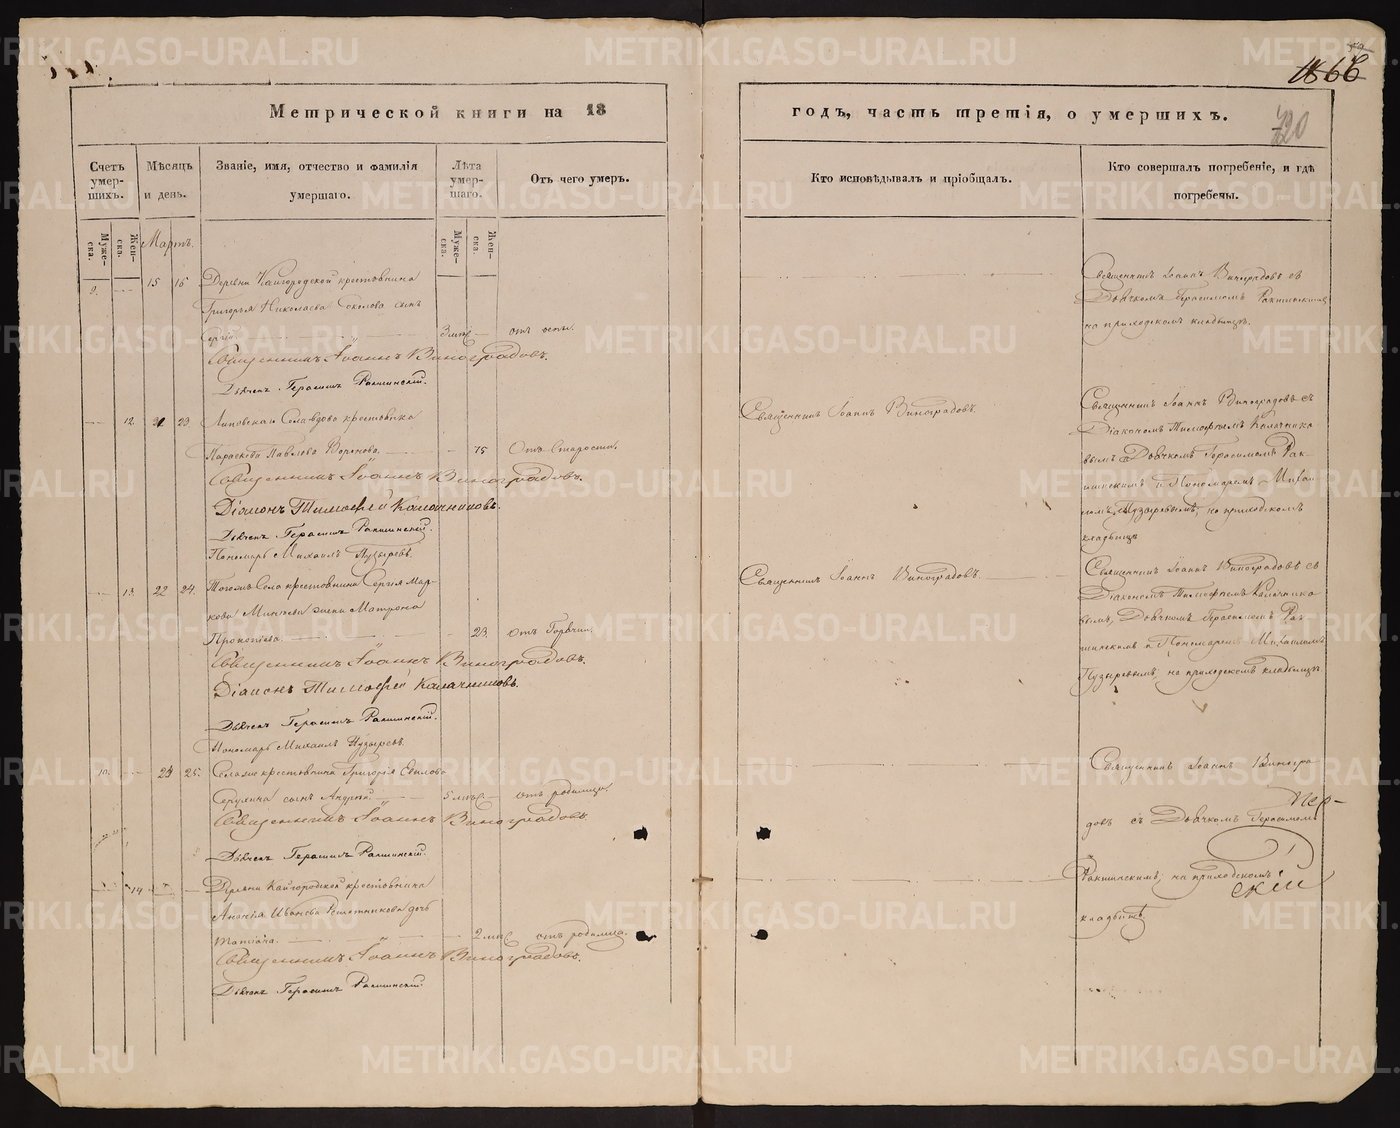 1866
720
Метрической книги на 18
годъ, часть третія, о умершихъ.
Счетъ умер-шихъ.
Мѣсяцъ и день.
Званіе, имя, отчество и фамилія умершаго.
Лѣта умер-шаго.
Отъ чего умеръ.
Кто исповѣдывалъ и пріобщалъ.
Кто совершалъ погребеніе, и гдѣ погребены.
Муже-ска.
Жен-ска.
Муже-ска.
Жен-ска.
Мартъ.
9. 15 16 Деревни Кайгородской крестьянина
Григорья Николаева Соколова сынъ
Сергій 3 мѣс. отъ оспы.
Священникъ Іоаннъ Виноградовъ.
Дьячекъ Герасимъ Ракшинскій.
Священникъ Іоаннъ Виноградовъ съ
Дьячкомъ Герасимомъ Ракшинскимъ
на приходскомъ кладбищѣ.
12. 21 23. Липовскаго Села вдова крестьянка
Параскева Павлова Воронова. 75 Отъ Старости.
Священникъ Іоаннъ Виноградовъ.
Діаконъ Тимофей Калачниковъ.
Дьячекъ Герасимъ Ракшинскій.
Пономарь Михаилъ Пузыревъ.
Священникъ Іоаннъ Виноградовъ.
Священникъ Іоаннъ Виноградовъ съ
Діакономъ Тимофеемъ Калачнико
вымъ Дьячкомъ Герасимомъ Рак-
шинскимъ и Пономаремъ Михаи
ломъ Пузыревымъ, на приходскомъ
кладбищѣ
13. 22 24. Тогожъ Села крестьянина Сергія Мар-
кова Минѣева жена Матрона
Прокопіева. 23. Отъ Горячки.
Священникъ Іоаннъ Виноградовъ.
Діаконъ Тимофей Калачниковъ.
Дьячекъ Герасимъ Ракшинскій.
Пономарь Михаилъ Пузыревъ.
Священникъ Іоаннъ Виноградовъ.
Священникъ Іоаннъ Виноградовъ съ
Діакономъ Тимофеемъ Калачнико
вымъ, Дьячкомъ Герасимомъ Рак-
шинскимъ и Пономаремъ Михаиломъ
Пузыревымъ, на приходскомъ кладбищѣ
10. 23 25. Села крестьянина Григорія
сынъ Андрей 5 мѣс. отъ родимца
Священникъ Іоаннъ Виноградовъ.
Дьячекъ Герасимъ Ракшинскій.
14. Деревни Кайгородской крестьянина
Ананія Иванова Решетникова дочь
Татіана. 2 мѣс. отъ родимца.
Священникъ Іоаннъ Виноградовъ.
Дьячекъ Герасимъ Ракшинскій.
Священникъ Іоаннъ Виногра
довъ съ Дьячкомъ Герасимомъ
Ракшинскимъ, на приходскомъ
кладбищѣ.
Пер-
скій
METRIKI.GASO-URAL.RU